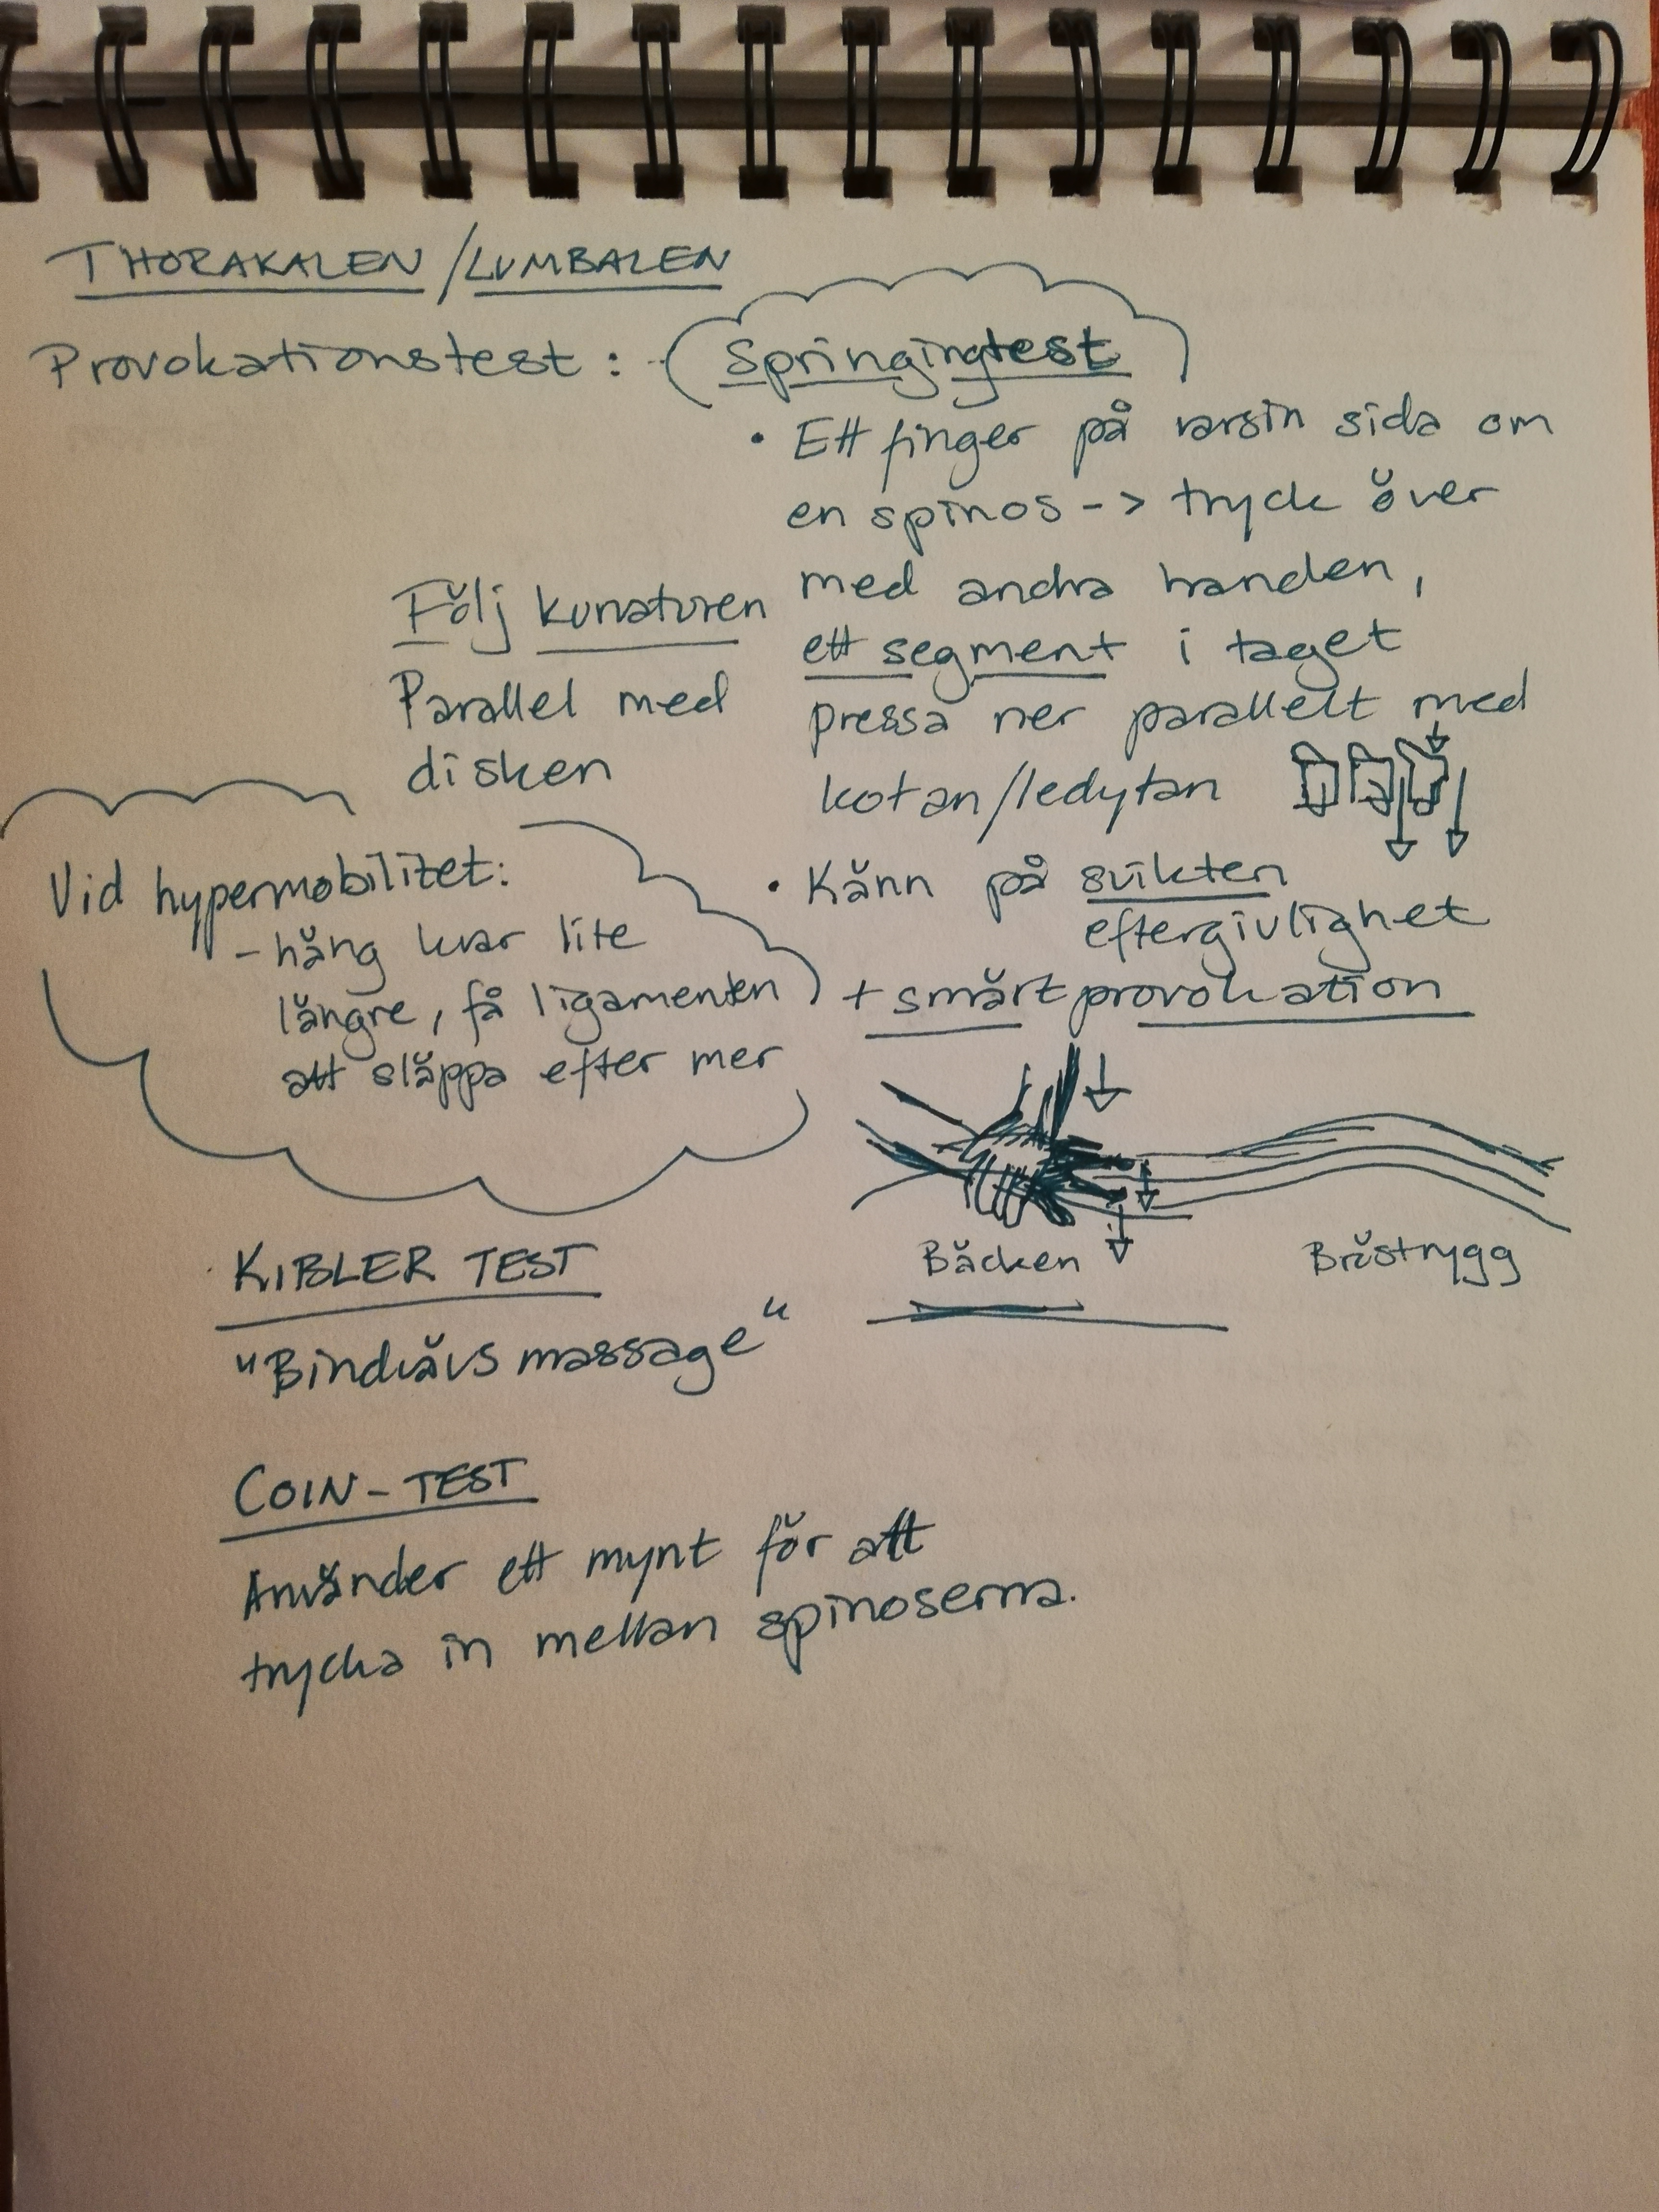 THORAKALEN / LUMBALEN
Provokationstest: Springingtest
• Ett finger på varsin sida om
en spinos -> tryck över
med andra handen,
ett segment i taget
pressa ner parallellt med
kotan/ledytan
Följ kurvaturen
Parallel med
disken
• Känn på svikten
eftergivlighet
+ smärtprovokation
Vid hypermobilitet:
- häng kvar lite
längre, få ligamenten
att släppa efter mer
Bäcken
Bröstrygg
KIBLER TEST
"Bindvävsmassage"
COIN-TEST
Använder ett mynt för att
trycka in mellan spinoserna.